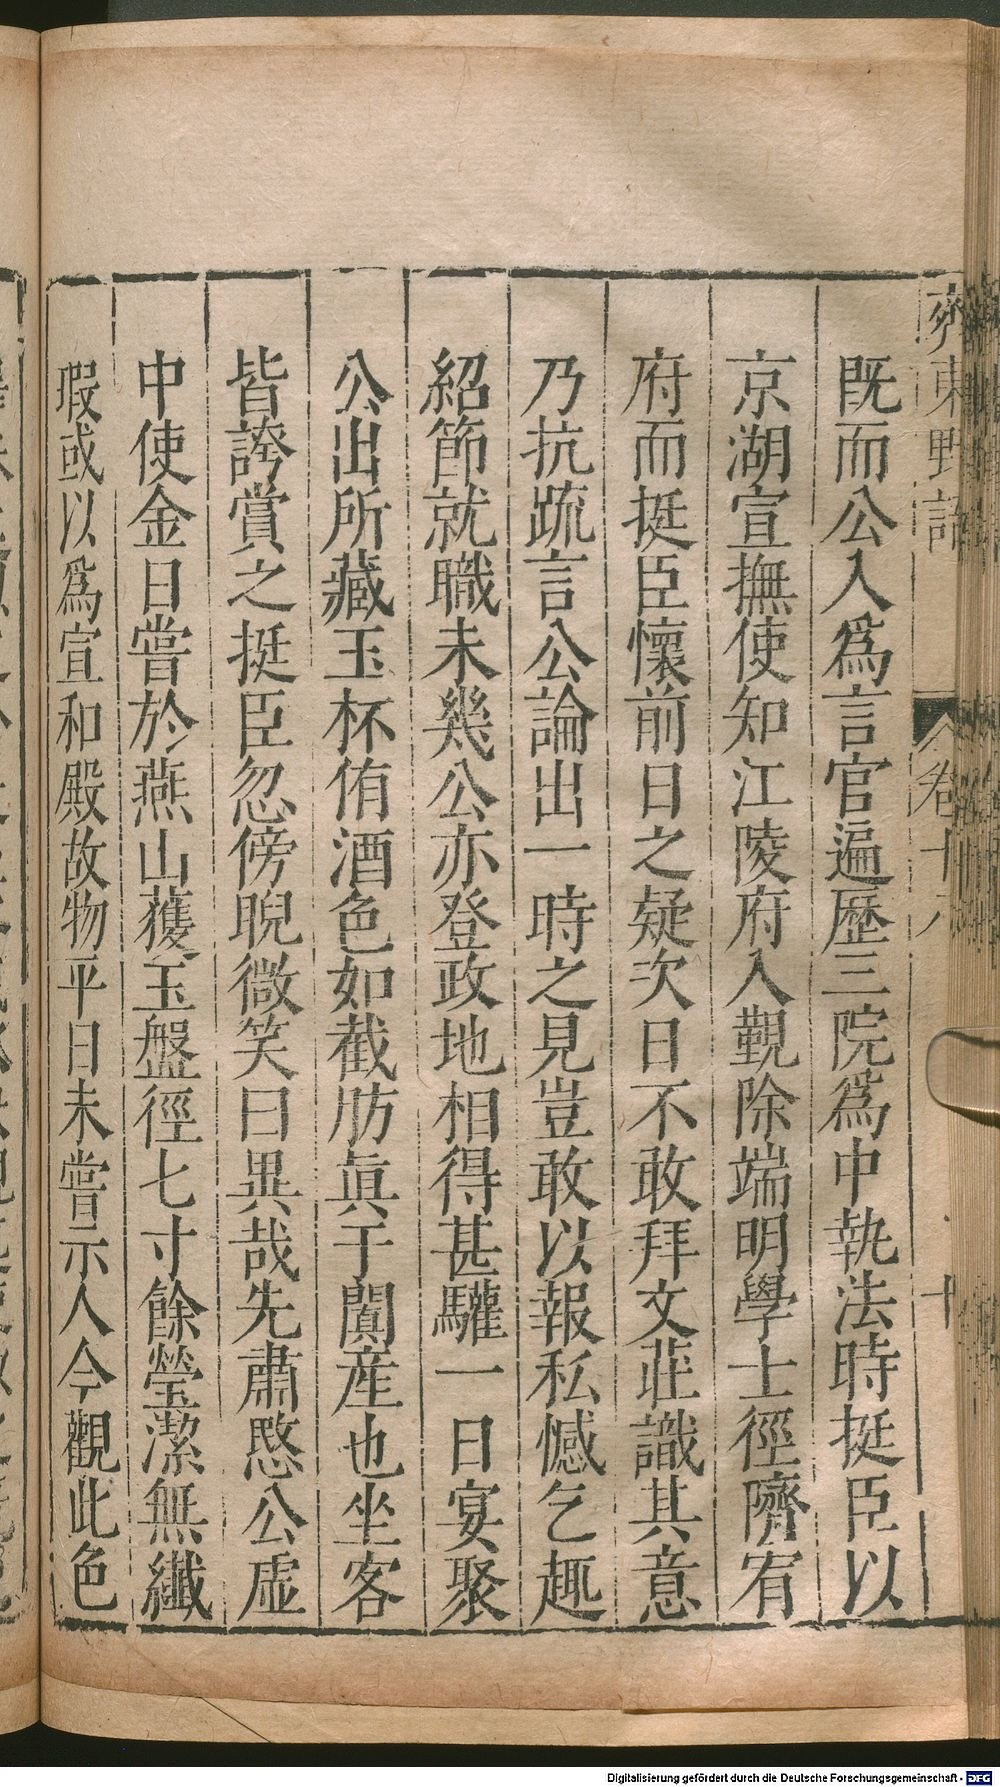 齊東野語 卷十八 十
既而公入爲言官遍歷三院爲中執法時挺臣以
京湖宣撫使知江陵府入覲除端明學士徑隮宥
府而挺臣懷前日之疑次日不敢拜文莊識其意
乃抗疏言公論出一時之見豈敢以報私憾乞趣
紹節就職未幾公亦登政地相得甚驩一日宴聚
公出所藏玉杯侑酒色如截肪眞于闐産也坐客
皆誇賞之挺臣忽傍睨微笑曰異哉先肅愍公虛
中使金日嘗於燕山獲玉盤徑七寸餘瑩潔無纖
瑕或以爲宣和殿故物平日未嘗示人今觀此色
Digitalisierung gefördert durch die Deutsche Forschungsgemeinschaft - DFG